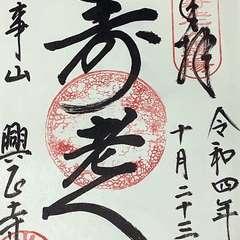 奉拝
令和四年
十月二十三
寿老人
事山
興正寺